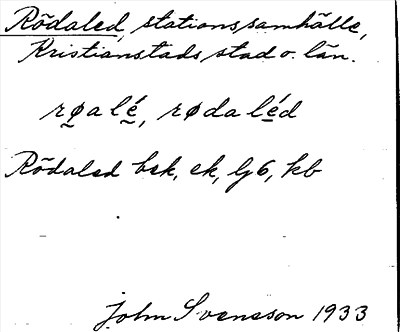 Rödaled, stationssamhälle,
Kristianstads stad o. län.
rø̱alé̱, rødalé̱d
Rödaled bsk, ek, G6, kb
John Svensson 1933